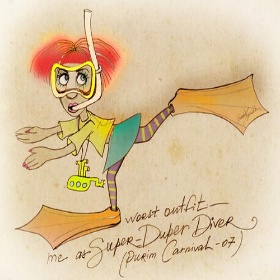 worst outfit—
me as Super-Duper Diver
(Purim Carnival -07)